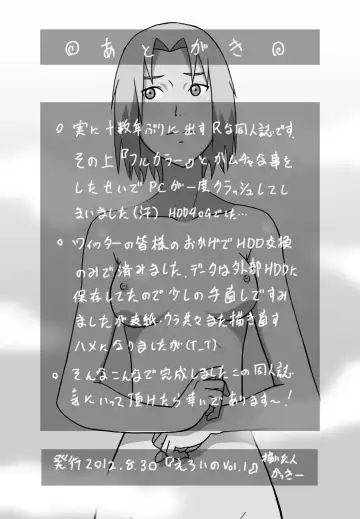 ◎ あとがき ◎
○ 実に十数年ぶりに出すRな同人誌です。
その上『フルカラー』とかムチャな事を
したせいでPCが一度クラッシュしてし
まいました(汗) HDD4ねでした…
○ ツイッターの皆様のおかげでHDD交換
のみで済みました、データは外部HDDに
保存してたので少しの手直しですみ
ましたが表紙・ウラ共々また描き直す
ハメになりましたが(T_T)
○ そんなこんなで完成しましたこの同人誌
気にいって頂けたら幸いであります〜!
発行2012.8.30『えろいのVol.1』
描いた人
かっきー